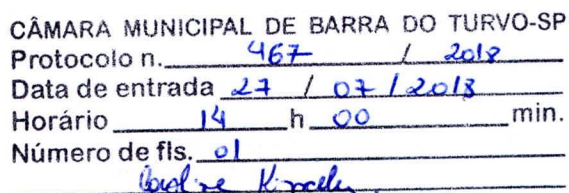 CÂMARA MUNICIPAL DE BARRA DO TURVO-SP
Protocolo n. 467 / 2018
Data de entrada 27 / 07 / 2018
Horário 14 h 00 min.
Número de fls. 01